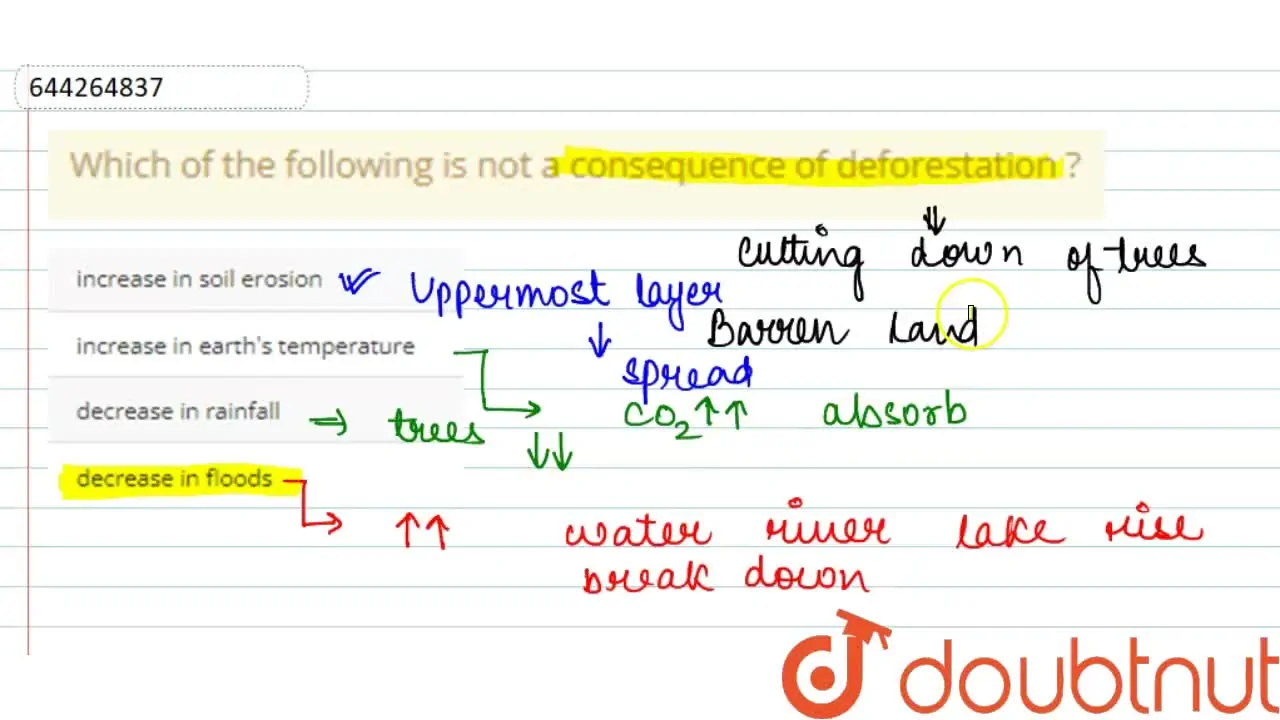 644264837
Which of the following is not a consequence of deforestation ?
Cutting down of trees
increase in soil erosion Uppermost layer
Barren Land
increase in earth's temperature
spread
CO2 ↑↑ absorb
decrease in rainfall ⇒ trees ↓↓
decrease in floods
↑↑ water river lake rise
break down
doubtnut